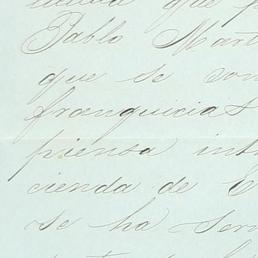 que
Pablo Mart
que se son
franquicias
piensa int
cienda de E
se ha ser